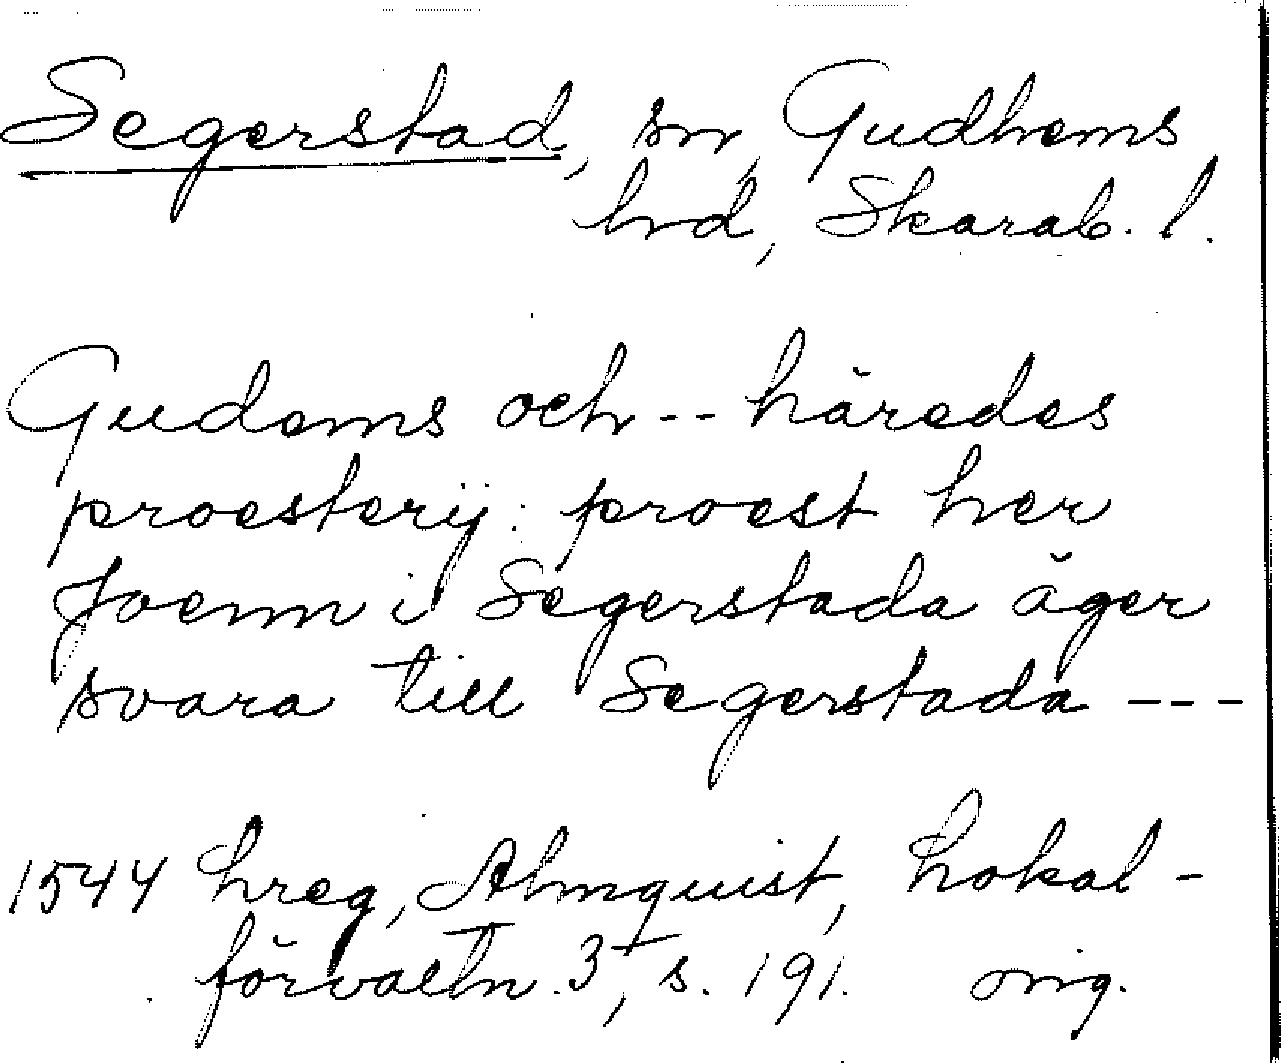 Segerstad, sn, Gudhems
hrd, Skarab. l.
Gudems och -- häredes
proesterij: proest her
Joenn i Segerstada äger
svara till Segerstada ---
1544 hreg, Almquist, Lokal-
förvaltn. 3, s. 191. orig.